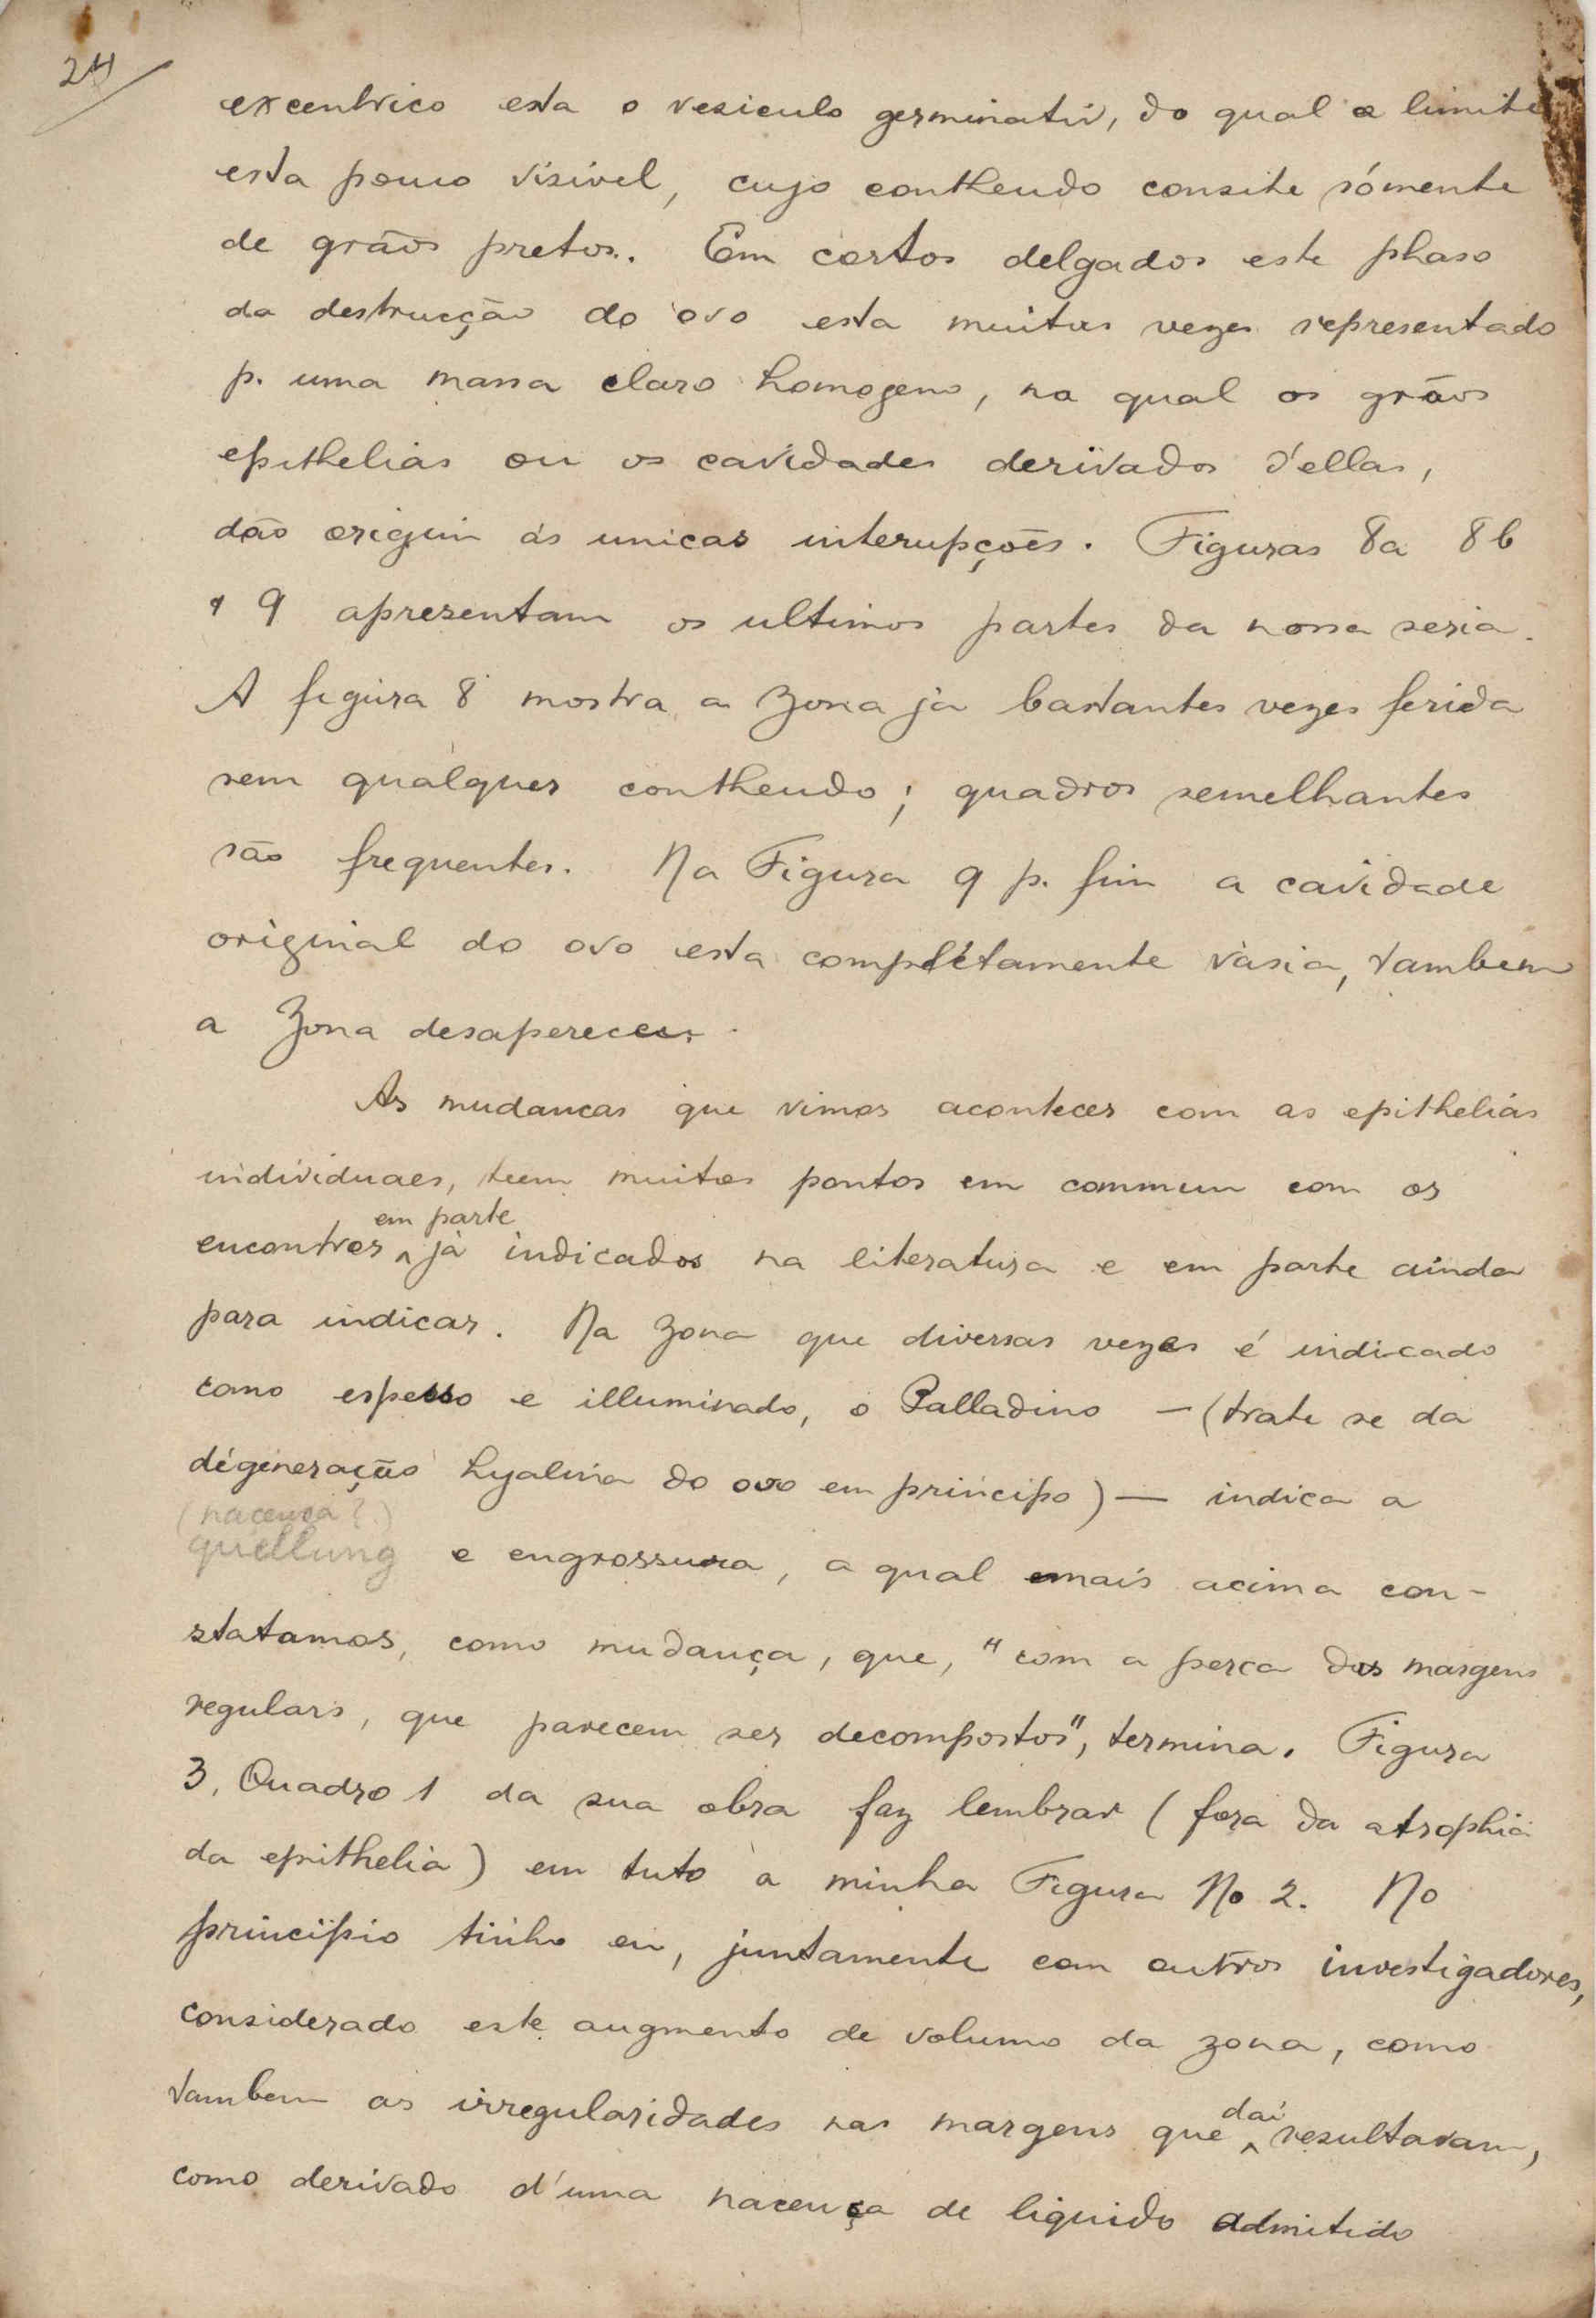 24
excentrico esta o vesiculo germinativ, do qual a limite
esta pouco visivel, cujo contheudo consite sómente
de grãos pretos. Em cortos delgados este phaso
da destrucção do ovo esta muitas vezes representado
p. uma massa claro homogeno, na qual os grãos
epithelias ou os cavidades derivados d'ellas,
dão origuin ás unicas interupções. Figuras 8a 8b
e 9 apresentam os ultimos partes da nossa seria.
A figura 8 mostra a Zona já bastantes vezes ferida
sem qualquer contheudo; quadros semelhantes
são frequentes. Na Figura 9 p. fim a cavidade
original do ovo esta complétamente vasia, tambem
a Zona desapereceu.
As mudancas que vimos acontecer com as epitheliás
individuaes, teem muitos pontos em commun com os
em parte
encontros ^ já indicados na literatura e em parte ainda
para indicar. Na Zona que diversas vezes é indicado
como espesso e illuminado, o Palladino — (trate se da
dégeneração hyalina do ovo em principo) — indica a
(nacença?)
quellung e engrossura, a qual mais acima con-
statamos, como mudança, que, "com a perca das margens
regulars, que parecem ser decompostos", termina. Figura
3, Quadro 1 da sua obra faz lembrar (fora da atrophia
da epithelia) em tuto à minha Figura No 2. No
principio tinho eu, juntamente com outros investigadores,
considerado este augmento de volumo da zona, como
tambem as irregularidades nas margens que ^ resultavam,
daí
como derivado d'uma nacença de liquido admitido